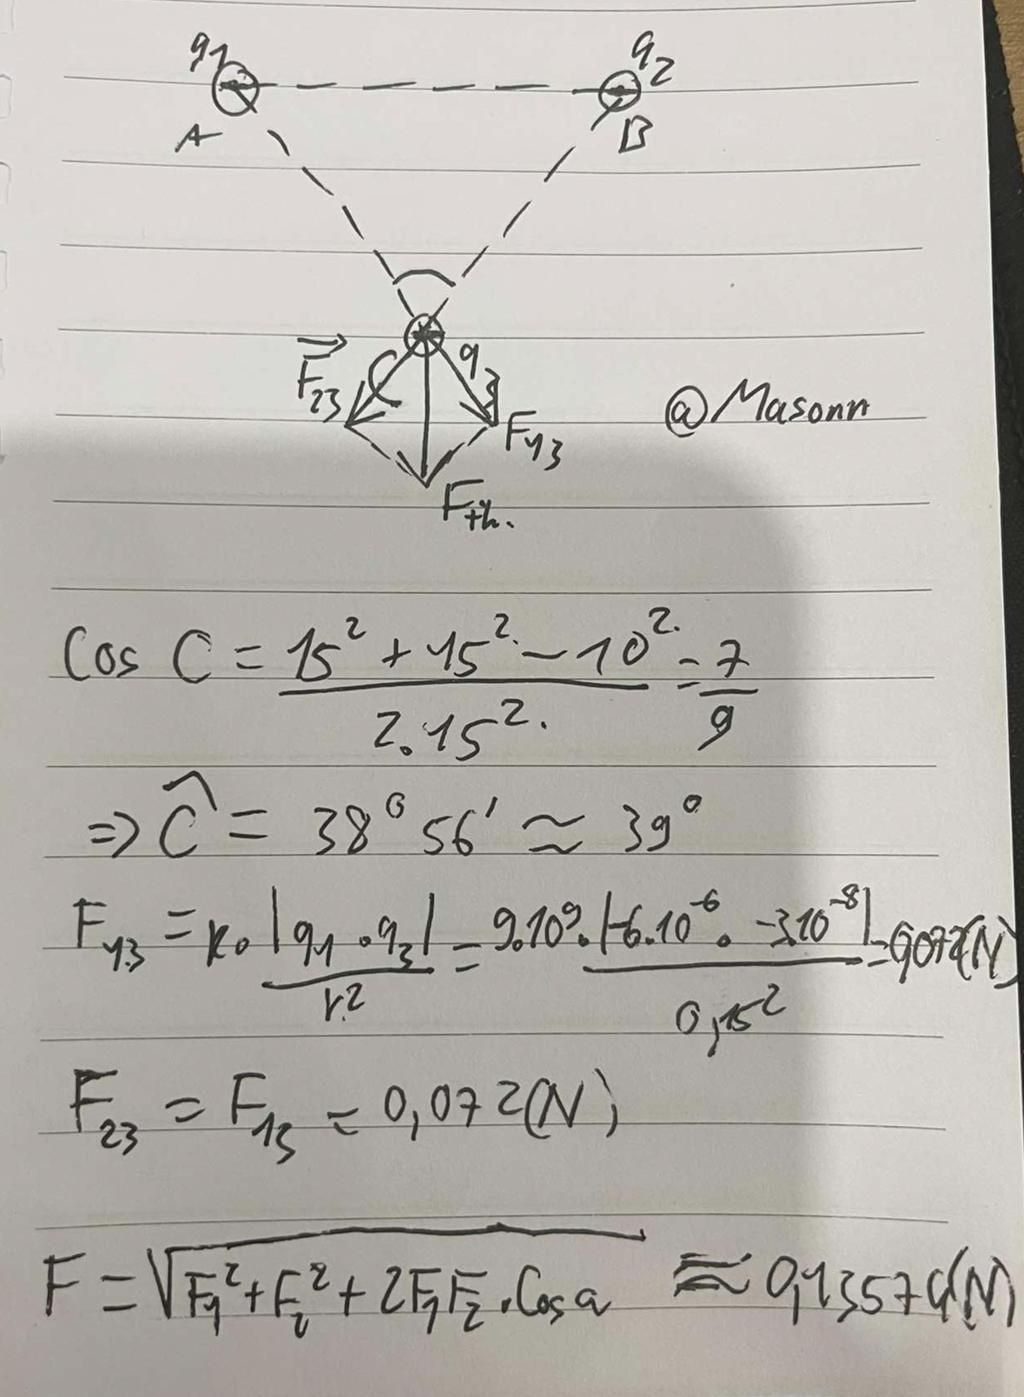 q1 q2
A B
F23 q3
F13
@Masonn
Fth.
Cos C = 15² + 15² - 10² / 2.15² = 7/9
=> Ĉ = 38° 56' ≈ 39°
F13 = k. |q1 . q3| / r² = 9.10⁹. |-6.10⁻⁶ . -3.10⁻⁸| / 0,15² = 0,072(N)
F23 = F13 = 0,072(N)
F = √F1² + F2² + 2F1F2 . Cos a ≈ 0,13574(N)